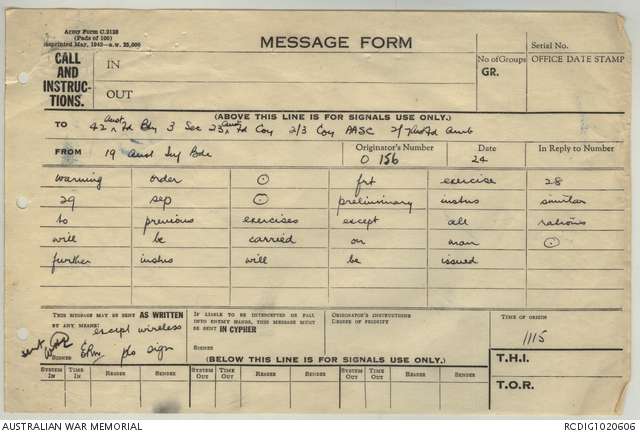 Army Form C.2128
(Pads of 100)
Reprinted May, 1942—a.w. 25,000
MESSAGE FORM
Serial No.
CALL
AND
INSTRUC-
TIONS.
IN
OUT
No of Groups
GR.
OFFICE DATE STAMP
(ABOVE THIS LINE IS FOR SIGNALS USE ONLY.)
TO 42 Aust Fd Bty 3 Sec 23 Aust Fd Coy 2/3 Coy AASC 2/7 Aust Fd Amb
FROM 19 Aust Inf Bde
Originator's Number
O 156
Date
24
In Reply to Number
warning order ⊙ frt exercise 28
29 sep ⊙ preliminary instns similar
to previous exercises except all rations
will be carried on man ⊙
further instns will be issued
THIS MESSAGE MAY BE SENT AS WRITTEN
BY ANY MEANS. except wireless
IF LIABLE TO BE INTERCEPTED OR FALL
INTO ENEMY HANDS, THIS MESSAGE MUST
BE SENT IN CIPHER
SIGNED
ORIGINATOR'S INSTRUCTIONS
DEGREE OF PRIORITY
TIME OF ORIGIN
1115
T.H.I.
T.O.R.
sent
SIGNED pls sign
(BELOW THIS LINE IS FOR SIGNALS USE ONLY.)
SYSTEM IN TIME IN READER SENDER SYSTEM OUT TIME OUT READER SENDER SYSTEM OUT TIME OUT READER SENDER
AUSTRALIAN WAR MEMORIAL
RCDIG1020606